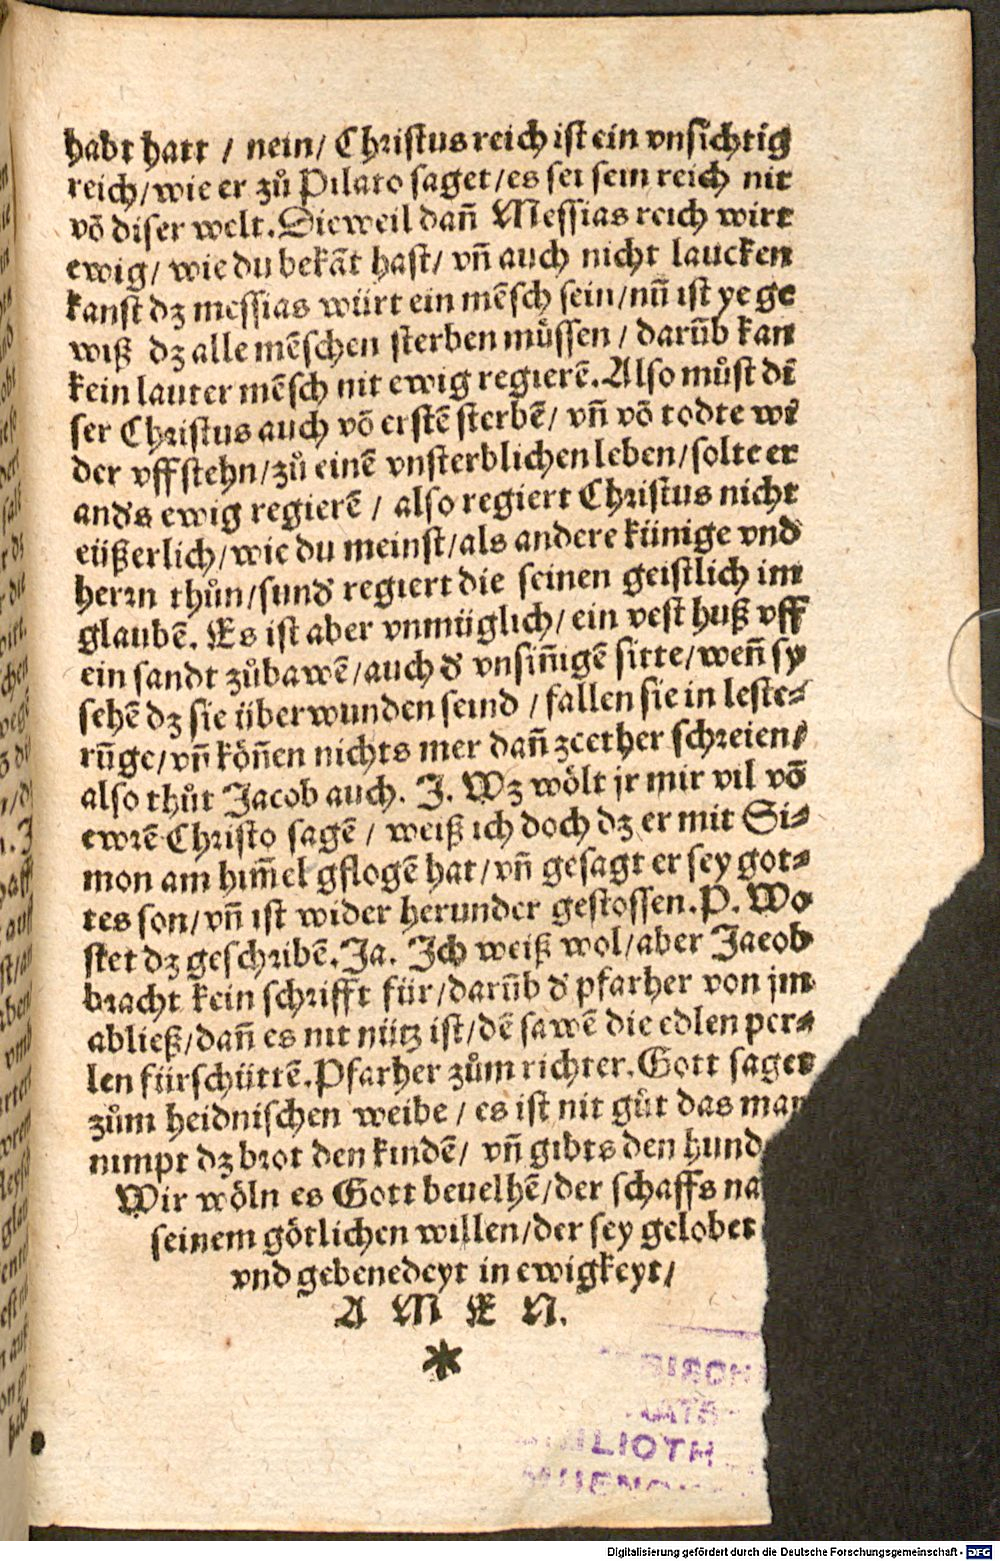 habt hatt / nein/ Christus reich ist ein vnsichtig
reich/wie er zů Pilato saget/es sei sein reich nit
võ diser welt. Dieweil dañ Messias reich wirt
ewig/ wie du bekãt hast/ vñ auch nicht laucken
kanst dz messias würt ein mẽsch sein/nũ ist ye ge
wiß dz alle mẽschen sterben můssen / darũb kan
kein lauter mẽsch nit ewig regierẽ. Also můst di
ser Christus auch võ erstẽ sterbẽ/ vñ võ todte wi
der vffstehn/zů einẽ vnsterblichen leben/solte er
and's ewig regierẽ / also regiert Christus nicht
eüßerlich/wie du meinst/als andere künige vnd
herrn thůn/sund' regiert die seinen geistlich im
glaubẽ. Es ist aber vnmüglich/ ein vest huß vff
ein sandt zůbawẽ/auch d' vnsiñigẽ sitte/weñ sy
sehẽ dz sie überwunden seind / fallen sie in leste⸗
rũge/vñ köñen nichts mer dañ zeether schreien/
also thůt Jacob auch. J. Wz wölt jr mir vil võ
ewrẽ Christo sagẽ / weiß ich doch dz er mit Si⸗
mon am him̃el gflogẽ hat/vñ gesagt er sey got⸗
tes son/vñ ist wider herunder gestossen. P. Wo
stet dz geschribẽ. Ja. Ich weiß wol/aber Jacob
bracht kein schrifft für/darũb d' pfarher von jm
abließ/dañ es nit nütz ist/dẽ sawẽ die edlen per⸗
len fürschüttẽ. Pfarher zům richter. Gott saget
zům heidnischen weibe / es ist nit gůt das man
nimpt dz brot den kindẽ/ vñ gibts den hund
Wir wöln es Gott beuelhẽ/der schaffs na
seinem götlichen willen/der sey gelobet
vnd gebenedeyt in ewigkeyt/
A M E N.
*
LIOTH
Digitalisierung gefördert durch die Deutsche Forschungsgemeinschaft - DFG